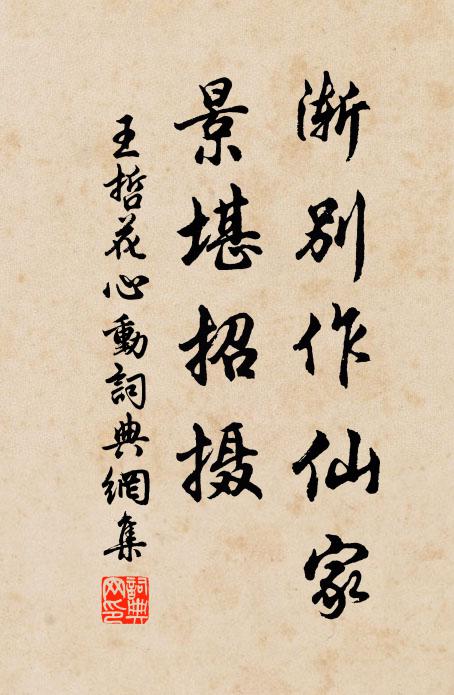 渐别作仙家
景堪招摄
王哲花心動詞典網集
詞典网印